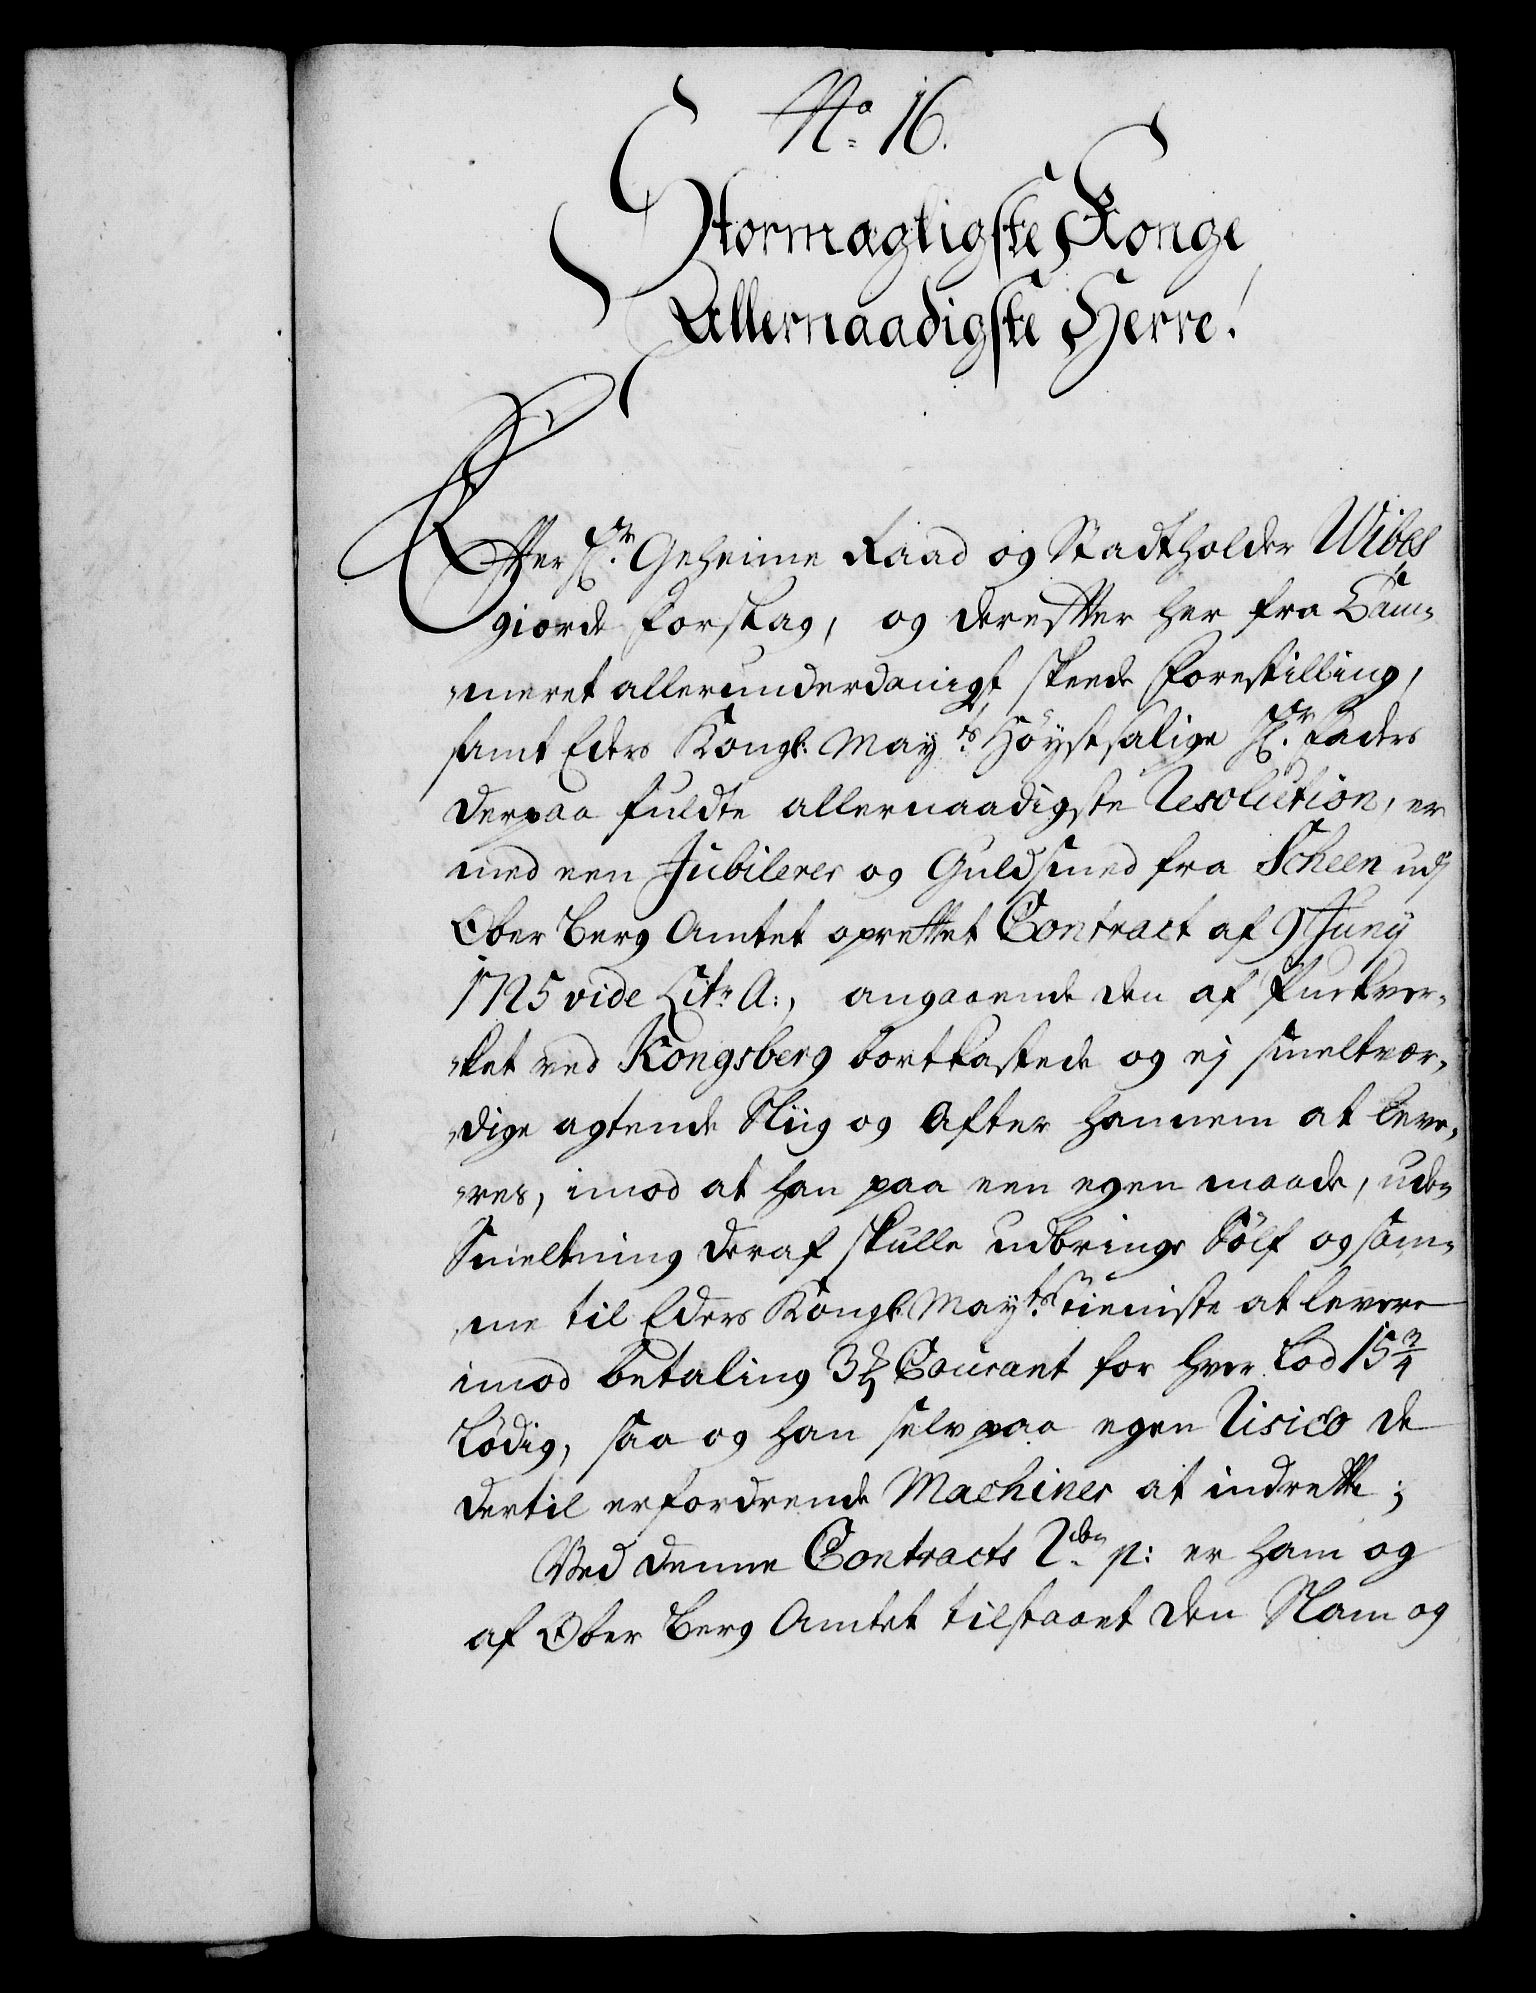 No. 16.
Stormægtigste Konge
Allernaadigste Herre!
Efter Hr. Geheime Raad og Stadtholder Wibes
giorde Forslag, og derefter her fra Cam-
meret allerunderdanigst skeede Forestilling,
samt Eders Kongl. Mayts Höystsalige Hr. Faders
derpaa fuldte allernaadigste Resolution, er
med een Jubilerer og Guldsmed fra Scheen udj
Ober Berg Amtet oprettet Contract af 9 Juny
1725 vide Litr A:, angaaende den af Puckver-
ket ved Kongsberg bortkastede og ej smeltvær-
dige agtende Sliig og Affter hannem at leve-
res, imod at han paa een egen maade, uden
Smeltning deraf skulle udbringe Sölf og sam-
me til Eders Kongl. Mayts tieniste at levere
imod betaling 3 ß Courant for hver Lod 15 3/4
Lödig, saa og han selv paa egen Risico de
dertil erfordrende Machiner at indrette;
Ved denne Contracts 2den p: er ham og
af Ober Berg Amtet tilstaaet den Slam og